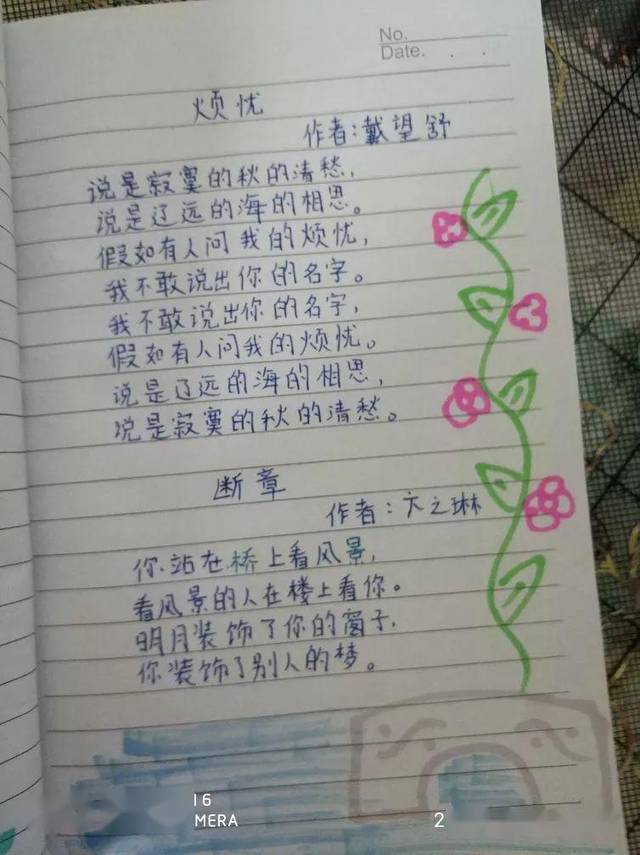 No.
Date. . .
烦忧
作者:戴望舒
说是寂寞的秋的清愁,
说是辽远的海的相思。
假如有人问我的烦忧,
我不敢说出你的名字。
我不敢说出你的名字,
假如有人问我的烦忧。
说是辽远的海的相思,
说是寂寞的秋的清愁。
断章
作者:卞之琳
你站在桥上看风景,
看风景的人在楼上看你。
明月装饰了你的窗子,
你装饰了别人的梦。
16
MERA
2